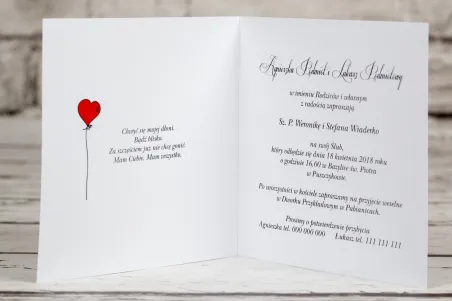 Chwyć się mojej dłoni.
Bądź blisko.
Za szczęściem już nie chcę gonić.
Mam Ciebie. Mam wszystko.
Agnieszka i Łukasz
w imieniu Rodziców i własnym
z radością zapraszają
Sz. P. Weronikę i Stefana Wiaderko
na swój Ślub,
który odbędzie się dnia 18 kwietnia 2018 roku
o godzinie 16.00 w Bazylice św. Piotra
w Puszczykowie.
Po uroczystości w kościele zapraszamy na przyjęcie weselne
w Dworku Przykładowym w Palmanicach.
Prosimy o potwierdzenie przybycia
Agnieszka tel. 000 000 000 Łukasz tel. 111 111 111